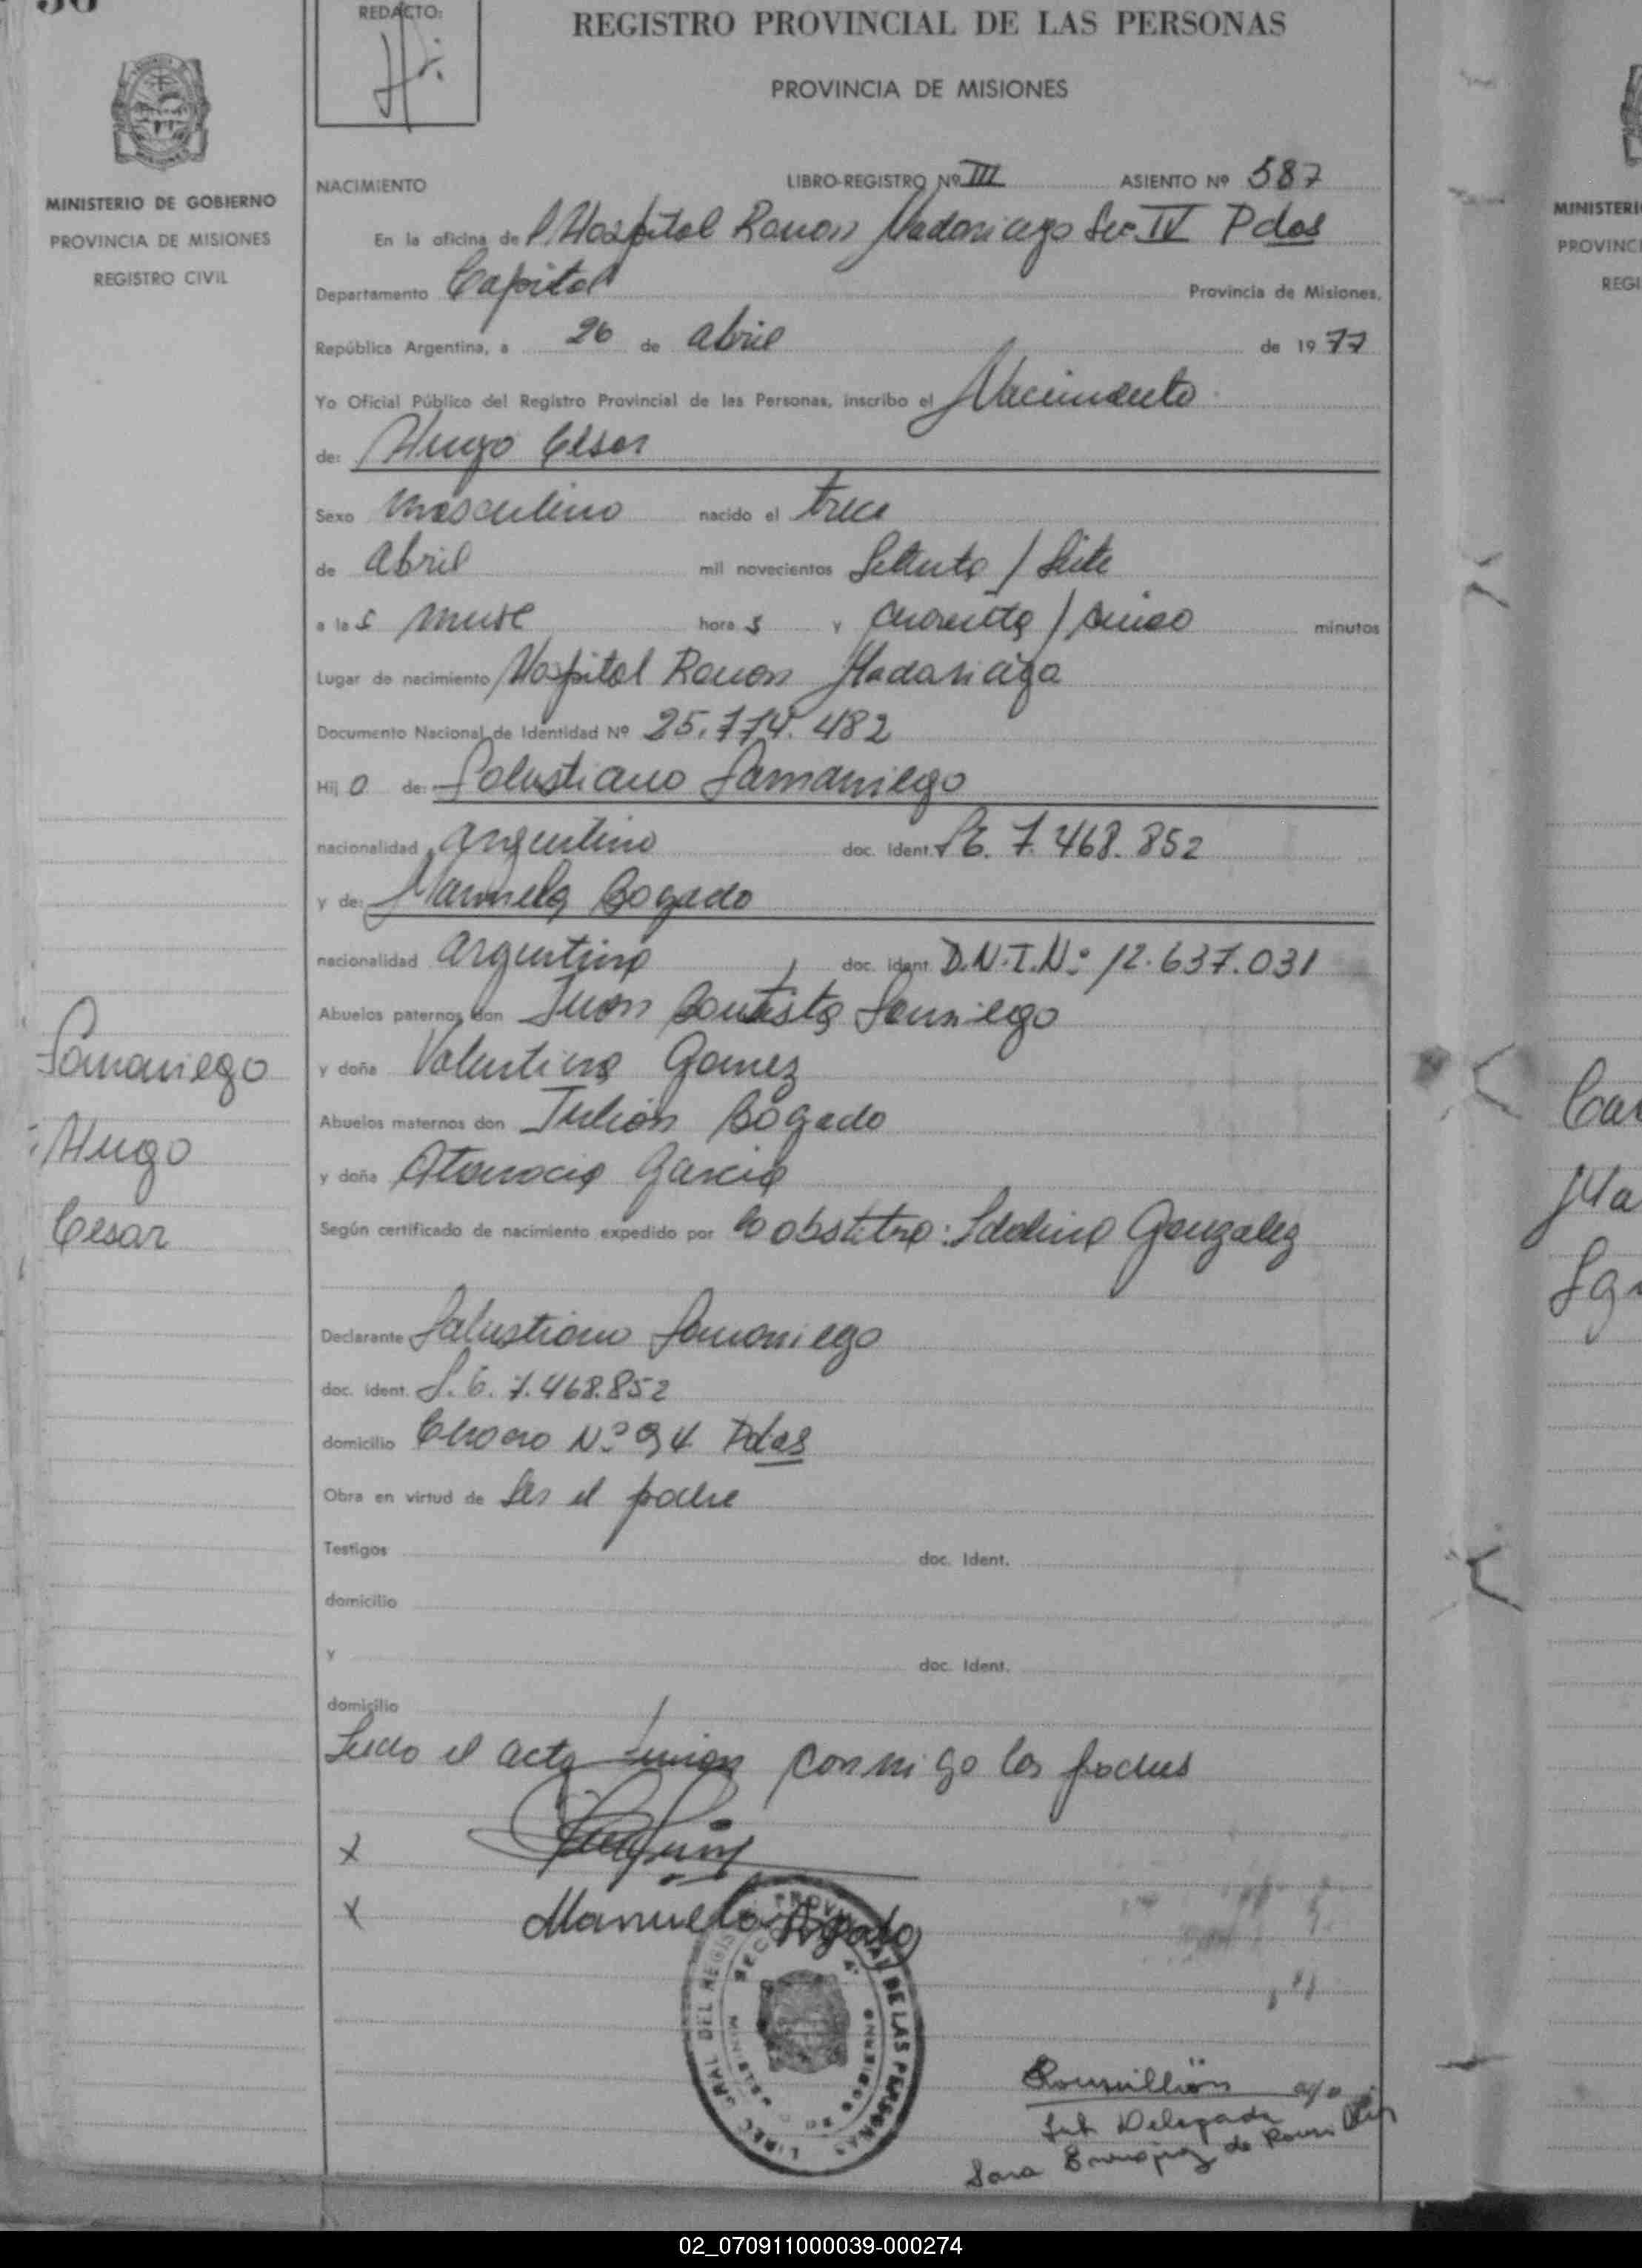 REDACTO:
REGISTRO PROVINCIAL DE LAS PERSONAS
PROVINCIA DE MISIONES
MINISTERIO DE GOBIERNO
PROVINCIA DE MISIONES
REGISTRO CIVIL
NACIMIENTO LIBRO-REGISTRO Nº III ASIENTO Nº 587
En la oficina de Hospital Ramon Madariaga Sec IV Pdas
Departamento Capital Provincia de Misiones.
República Argentina, a 26 de abril de 1977
Yo Oficial Público del Registro Provincial de las Personas, inscribo el Nacimiento
de: Hugo Cesar
Sexo masculino nacido el trece
de abril mil novecientos Setenta / Siete
a las nueve horas y cuarenta / cinco minutos
Lugar de nacimiento Hospital Ramon Madariaga
Documento Nacional de Identidad Nº 25.774.482
Hijo de: Salustiano Samaniego
nacionalidad argentino doc. Ident. L.E. 7.468.852
y de: Manuela Bogado
nacionalidad argentina doc. ident. D.N.I.Nº 12.637.031
Abuelos paternos don Juan Bautista Samniego
y doña Valentina Gomez
Abuelos maternos don Julián Bogado
y doña Atanacia Garcia
Según certificado de nacimiento expedido por la obstetra: Idelina Gonzalez
Samaniego
Hugo
Cesar
Declarante Salustiano Samaniego
doc. ident. L.E. 7.468.852
domicilio Chaco Nº 94 Pdas
Obra en virtud de Ser el padre
Testigos doc. Ident.
domicilio
y doc. Ident.
domicilio
Leido el acta firman conmigo los padres
X
X Manuela Bogado
DIREC GRAL DEL REGISTRO PROVINCIAL DE LAS PERSONAS
Roussillón
Sub Delegada
Sara de
MINISTERI
PROVINCI
REGI
02_070911000039-000274